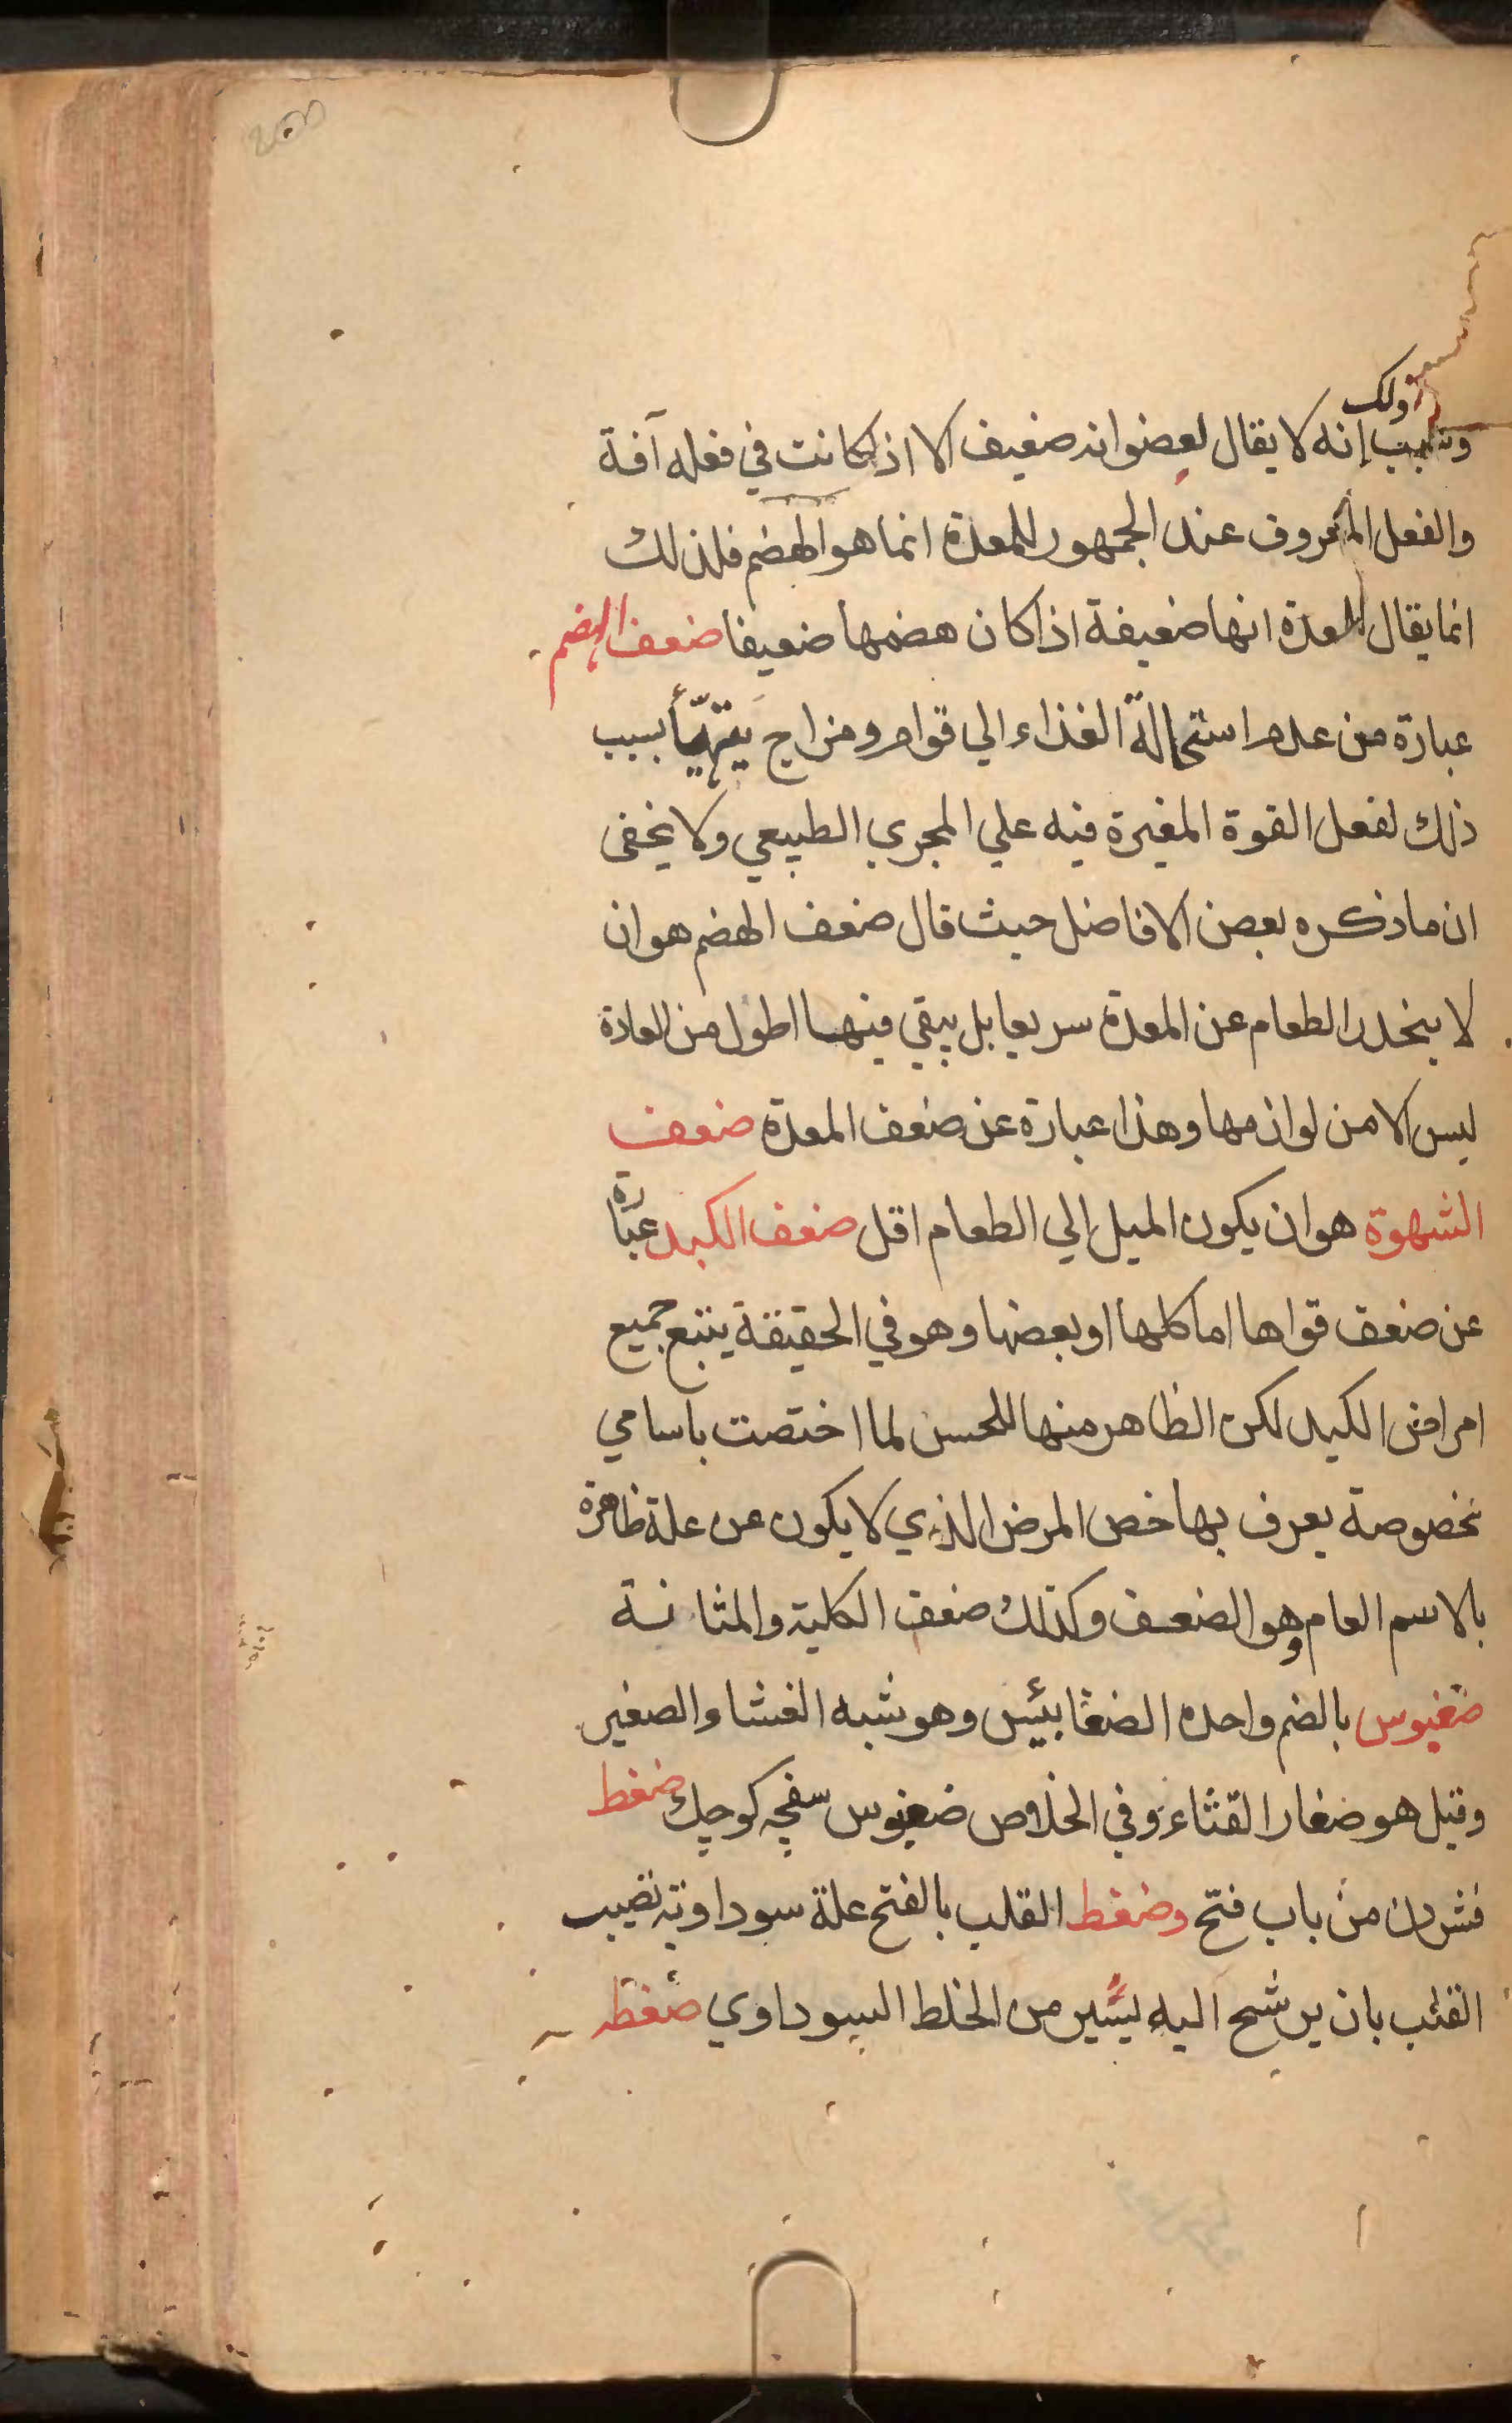 ذلك
وسبب إنه لا يقال لعضو انه ضعيف الا اذا كانت في فعله آفة
والفعل المعروف عند الجمهور للمعدة انما هو الهضم فلذلك
انما يقال للمعدة انها ضعيفة اذا كان هضمها ضعيفا ضعف الهضم
عبارة من عدم استحالة الغذاء الي قوام ومزاج يتهيّأ بسبب
ذلك لفعل القوة المغيرة فيه علي المجري الطبيعي ولا يخفى
ان ما ذكره بعض الافاضل حيث قال ضعف الهضم هو ان
لا ينحدر الطعام عن المعدة سريعا بل يبقي فيها اطول من العادة
ليس الا من لوازمها وهذا عبارة عن ضعف المعدة ضعف
الشهوة هو ان يكون الميل الي الطعام اقل ضعف الكبد عبارة
عن ضعف قواها اما كلها او بعضها وهو في الحقيقة يتبع جميع
امراض الكبد لكن الظاهر منها للحس لما اختصت باسامي
مخصوصة يعرف بها خص المرض الذي لا يكون عن علة ظاهرة
بالاسم العام وهو الضعف وكذلك ضعف الكلية والمثانة
ضغبوس بالضم واحده الضغابيس وهو شبه القثاء الصغير
وقيل هو صغار القثاء وفي الخلاص ضغبوس سفچه كوچك ضغط
فشردن من باب فتح وضغط القلب بالفتح علة سوداوية تصيب
القلب بان يرشح اليه يسير من الخلط السوداوي ضغطه